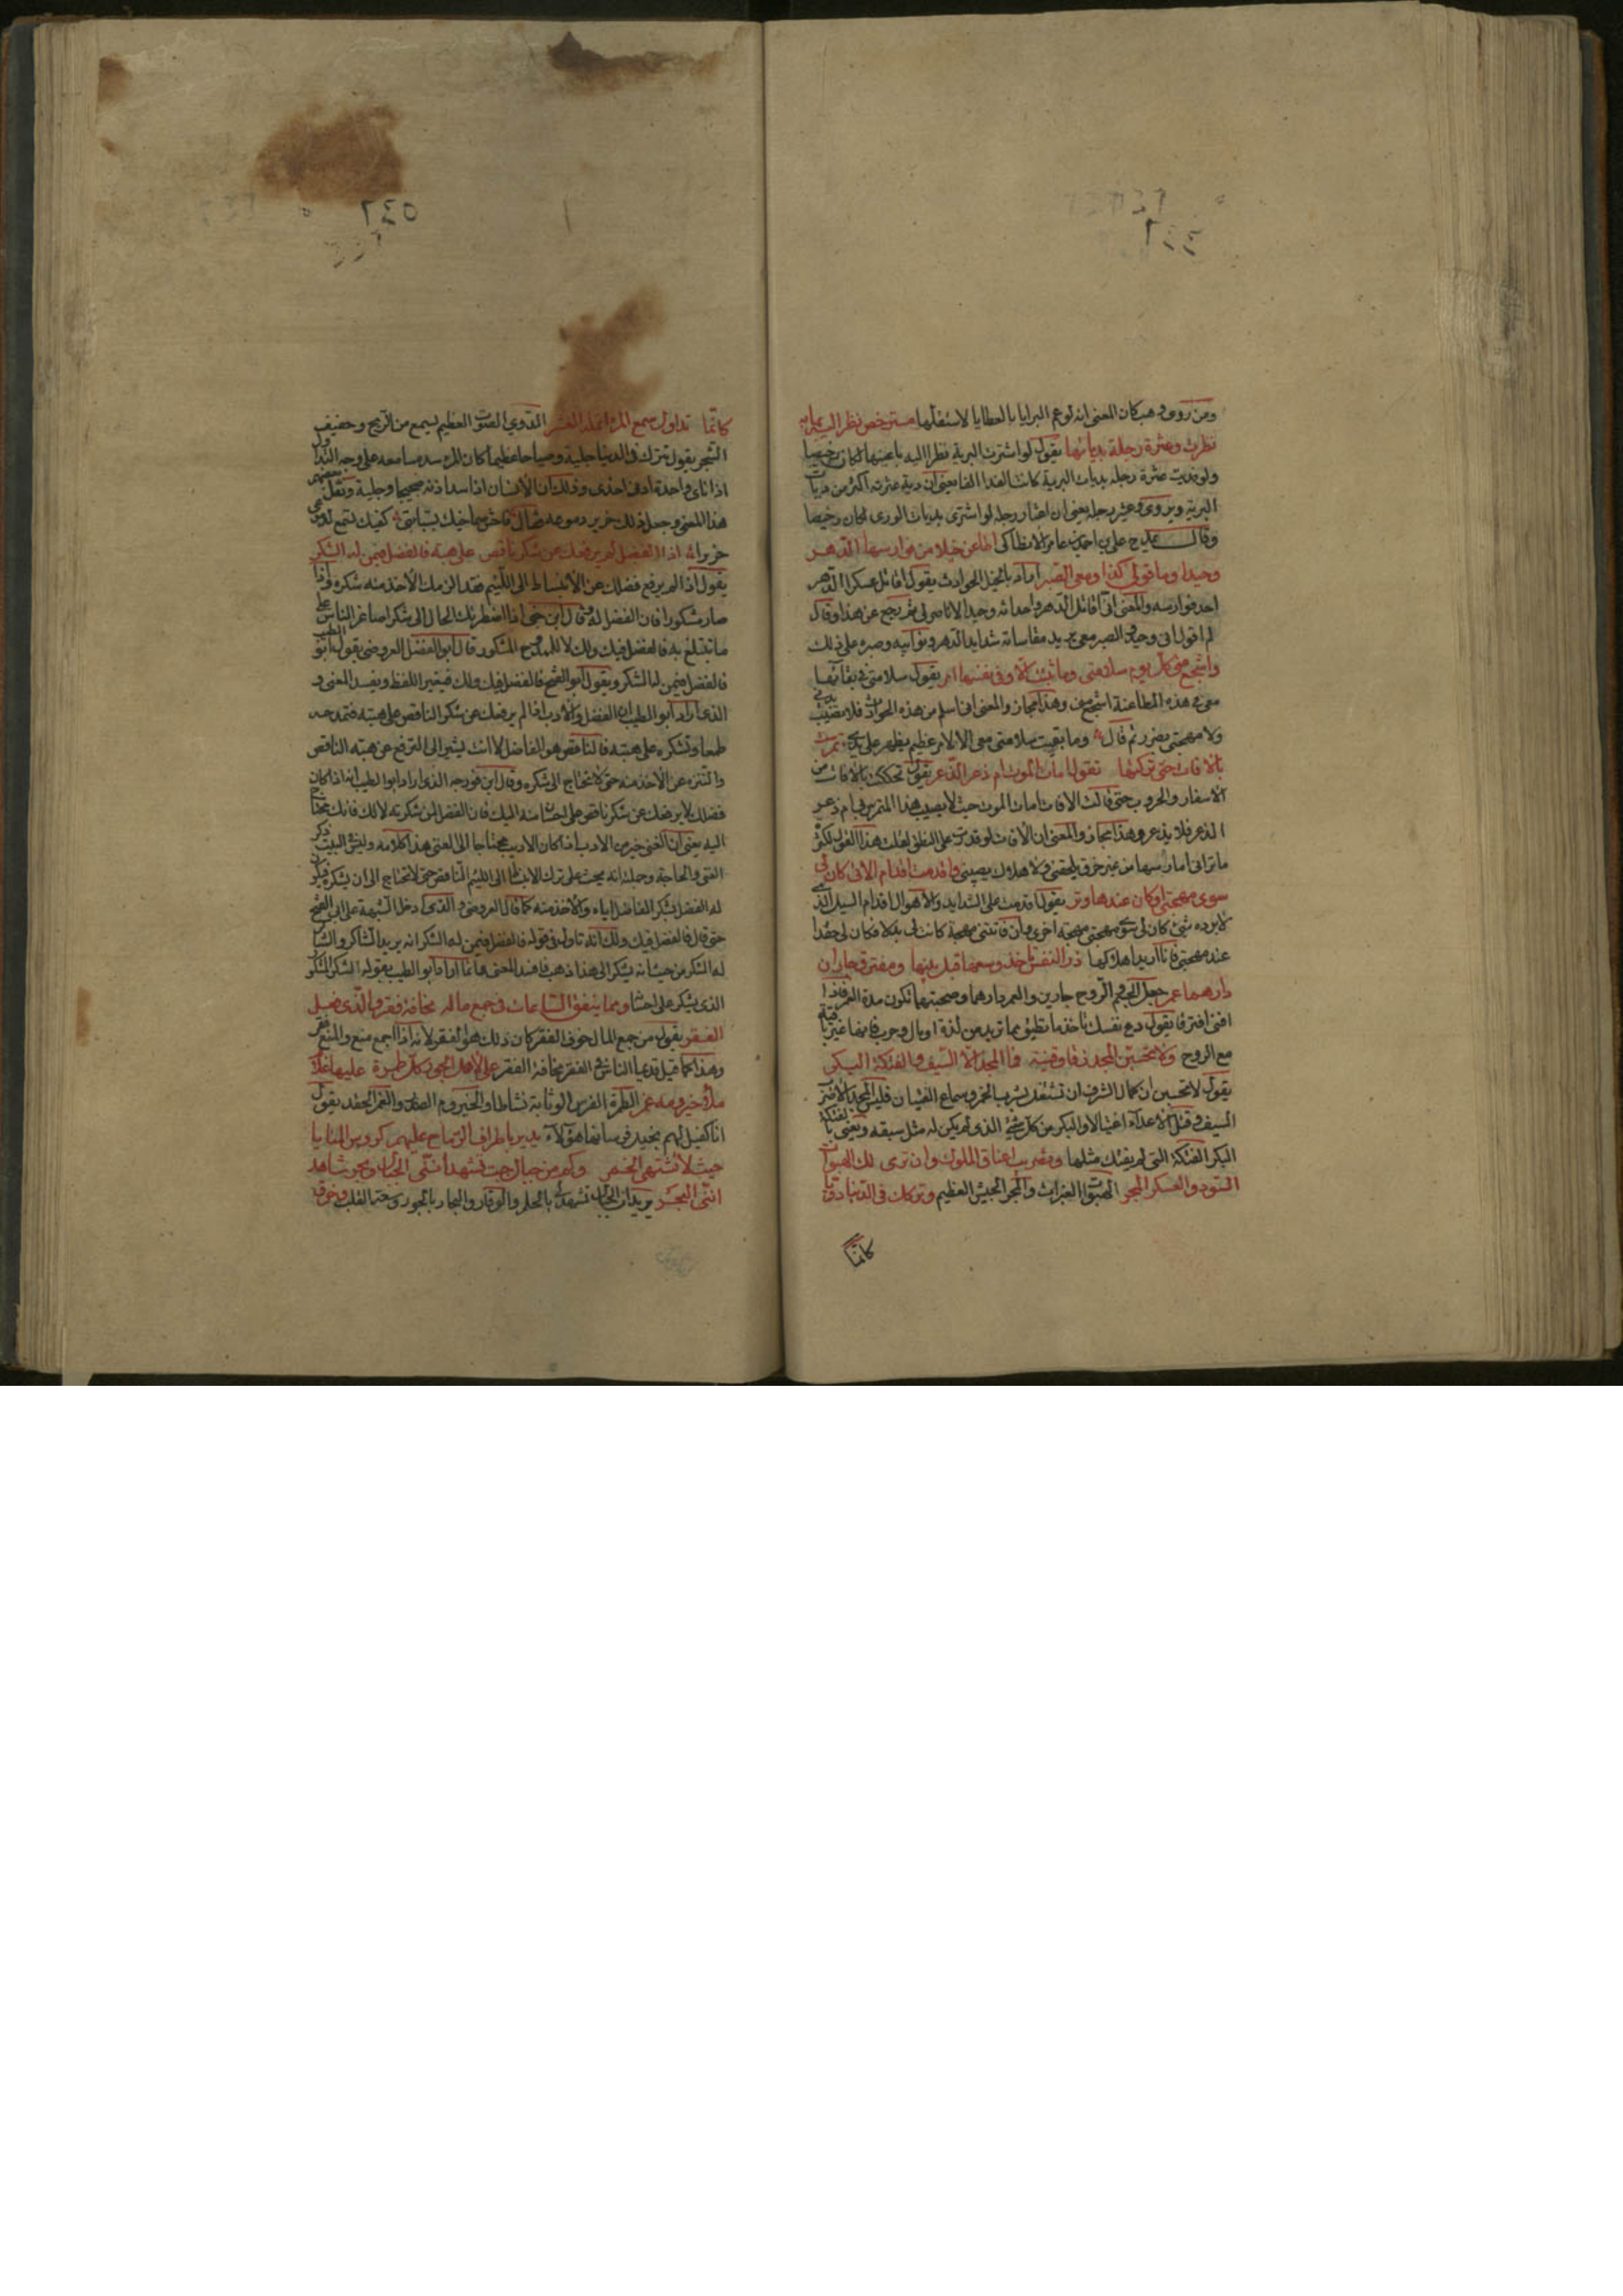 ومن روى وهب كان المعنى انه لو عم البرايا بالعطايا لاستقلها مسترخص نظر اليه بما به
نظرت وعثرة رجله بدياتها يقول لو اشترت البرية نظرا اليه باعينها لكان رخيصا
ولو فديت عثرة رجله بديات البرية كانت
البرية ويروى وعثير رجله يعنى ان لغبار رجله لو اشترى بديات الورى لكان رخيصا
وقال يمدح على بن احمد بن عامر الانطاكى اطاعن خيلا من فوارسها الدهر
وحيدا وما قولى كذا ومعى الصبر اراد بالخيل الحوادث يقول اقاتل عسكرا الدهر
احد فوارسه والمعنى انى اقاتل الدهر واحداثه وحيدا لا ناصر لى ثم رجع عن هذا وقال
لم اقول انى وحيد والصبر معى يريد مقاساته شدايد الدهر ونوائبه وصبره على ذلك
واشجع منى كل يوم سلامتى وما ثبتت الا وفى نفسها امر يقول سلامتى فى بقائها
معى فى هذه المطاعنة اشجع منى وهذا مجاز والمعنى انى اسلم من هذه الحوادث فلا تصيب بدنى
ولا مهجتى بضرر ثم قال وما بقيت سلامتى معى الا لامر عظيم يظهر على يدى تمرست
بالآفات حتى تركتها تقول امات الموت ام ذعر الذعر يقول تحككت بالآفات من
الاسفار والحروب حتى قالت الافات امات الموت حيث لا يصيب هذا المتمرس بى ام ذعر
الذعر فلا يذعره وهذا مجاز والمعنى ان الآفات لو قدرت على النطق لقالت هذا القول لكثرة
ما ترانى امارسها من غير خوف يلحقنى ولا هلاك يصيبنى واقدمت اقدام الاتى كان لى
سوى مهجتى او كان عندها وتر يقول اقدمت على الشدايد والاهوال اقدام السيل الذى
لا يرده شئ كان لى سوى مهجتى مهجة اخرى وان فاتتنى مهجة كانت لى بدلا او كان لى حقدا
عند مهجتى فانا اريد اهلاكها ذر النفس تاخذ وسعها قبل بينها ومفترق جاران
دارهما عمر جعل الجسم والروح جارين والعمر دارهما وصحبتهما تكون مدة العمر فاذا
افنى افترقا يقول دع نفسك تاخذ ما تطيق مما تريد من لذة او مال وحرب فانها غير باقية
مع الروح ولا تحسبن المجد زقا وقينة فما المجد الا السيف والفتكة البكر
يقول لا تحسبن ان كمال الشرف ان تشتغل بشرب الخمر وسماع القينان فليس المجد الا ضرب
السيف وقتل الاعداء اغتيالا والبكر من كل شئ الذى لم يكن له مثل سبقه ويعنى بالفتكة
البكر الفتكة التى لم يفتك مثلها وتضريب اعناق الملوك وان ترى لك الهبوات
السود والعسكر المجر الهبوات الغبرات والمجر الجيش العظيم وتركك فى الدنيا دويا
كانما
٥٤٦
كانما تداول سمع المرء انمله العشر الدوي الصوت العظيم يسمع من الريح وحفيف
الشجر يقول تترك فى الدنيا جلبة وصياحا عظيما كان المرء سد مسامعه على وجه التداول
اذا نأى واحدة ادنى اخرى وذلك ان الانسان اذا سد اذنه سمع ضجيجا وجلبة ونقل بعضهم
هذا المعنى وجعله لذلك خرير دموعه فقال فاحش صماخيك بسبابتى كفيك تسمع لدموعى
خريرا اذا الفضل لم يرفعك عن شكر ناقص على هبة فالفضل فيمن له الشكر
يقول اذا لم يرفع فضلك عن الانبساط الى اللئيم فقد الزمك الاخذ منه شكره فاذا
صار مشكورا فان الفضل له قال ابن جنى اذا اضطرتك الحال الى شكر اصاغر الناس على
ما تتبلغ به فالفضل فيك ولك لا للممدوح المشكور قال ابو الفضل العروضى يقول ابو الطيب
فالفضل فيمن له الشكر ويقول ابو الفتح فالفضل فيك ولك فيغير اللفظ ويفسد المعنى و
الذى اراد ابو الطيب ان الفضل والادب اذا لم يرفعك عن شكر الناقص على هبته فتمدحه
طمعا وتشكره على هبته فالناقص هو الفاضل لا انت يشير الى الترفع عن هبة الناقص
والتنزه عن الاخذ منه حتى لا يحتاج الى شكره وقال ابن فورجه الذى اراد ابو الطيب انه اذا كان
فضلك لا يرفعك عن شكر ناقص على احسان منه اليك فان الفضل لمن شكرته لا لك فانك محتاج
اليه يعنى ان الغنى خير من الادب اذا كان الاديب محتاجا الى الغنى هذا كلامه وليس فى البيت ذكر
الغنى والحاجة وجملته انه يحث على ترك الانبساط الى اللئيم الناقص حتى لا تحتاج الى ان تشكره فيكون
له الفضل بشكر الفاضل اياه والاخذ منه كما قال العروضى والذى ادخل الشبهة على ابى الفتح
حتى قال فالفضل فيك ولك انه تاول فى قوله فالفضل فيمن له الشكر انه يريد الشاكر والشاكر
له الشكر من حيث انه يشكر الى هذا ذهب فافسد المعنى وانما اراد ابو الطيب بقوله الشكر المشكور
الذى يشكر على احسان ومن ينفق الساعات فى جمع ماله مخافة فقر فالذى فعل
الفقر يقول من جمع المال خوف الفقر كان ذلك هو الفقر لانه اذا جمع منع والمنع فقر
وهذا كما قيل قديما الناس فى الفقر مخافة الفقر على لاهل الجور كل طمرة عليها غلام
ملء حيزومه غمر الطمرة الفرس الوثابة نشاطا والحيزوم الصدر والغمر الحقد يقول
انا كفيل لهم بخيل فرسانها هؤلاء يدير باطراف الرماح عليهم كؤوس المنايا
حيث لا تشتهى الخمر وكم من جبال جبت تشهد اننى الجبال وبحر شاهد
اننى البحر يريد ان الجبال تشهد لى بالحلم والوقار والبحار بالجود وسعة القلب وخرق